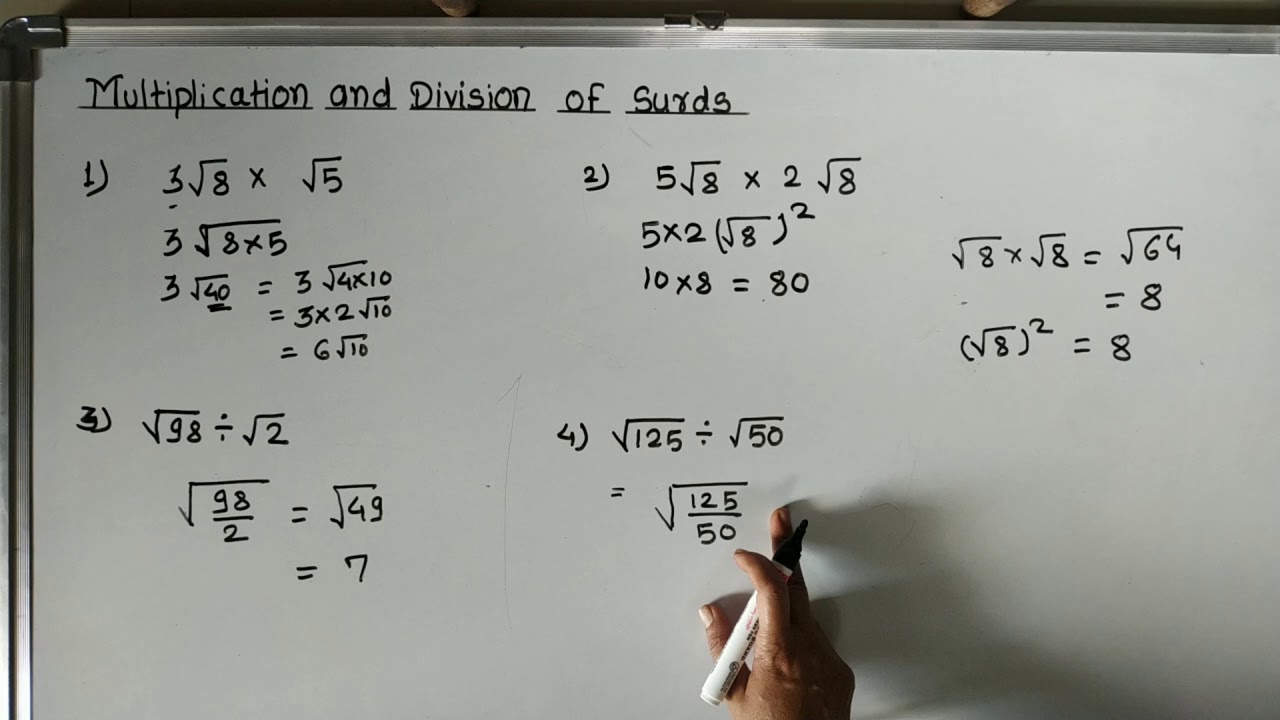 Multiplication and Division of Surds
1) 3√8 × √5
3√(8×5)
3√40 = 3√(4×10)
= 3×2√10
= 6√10
2) 5√8 × 2√8
5×2(√8)²
10×8 = 80
√8×√8 = √64
= 8
(√8)² = 8
3) √98 ÷ √2
√(98/2) = √49
= 7
4) √125 ÷ √50
= √(125/50)